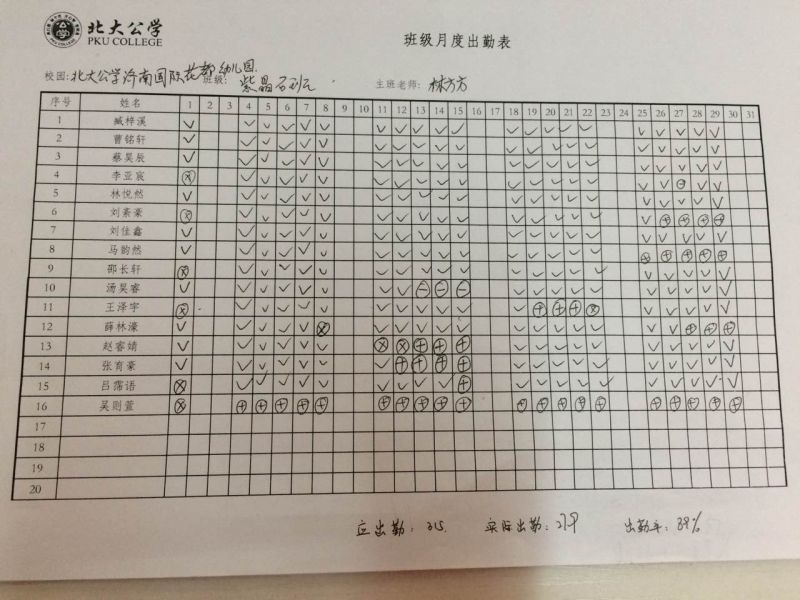 北大公学
PKU COLLEGE
班级月度出勤表
校园: 北大公学济南国际花都幼儿园 班级: 紫晶石班 主班老师: 林方方
序号 姓名 1 2 3 4 5 6 7 8 9 10 11 12 13 14 15 16 17 18 19 20 21 22 23 24 25 26 27 28 29 30 31
1 臧梓溪
2 曹铭轩
3 蔡昊辰
4 李亚宸
5 林悦然
6 刘素豪
7 刘佳鑫
8 马韵然
9 邵长轩
10 汤昊睿
11 王泽宇
12 薛林濠
13 赵睿婧
14 张育豪
15 吕霈语
16 吴则萱
17
18
19
20
应出勤: 315 实际出勤: 279 出勤率: 89%